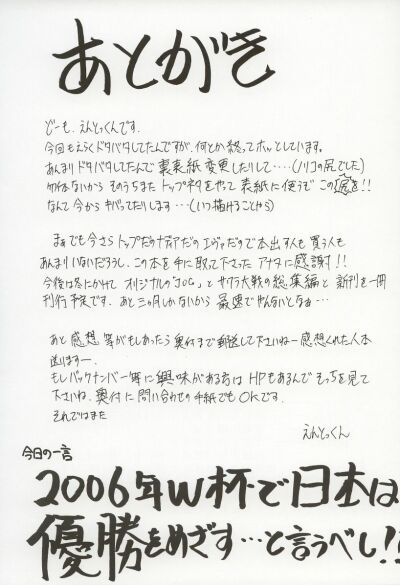 あとがき
どーも、えんとっくんです。
今回もえらくドタバタしてたんですが、何とか終ってホッとしています。
あんまりドタバタしてたんで裏表紙変更したりして‥‥(ノリコの尻でした)
勿体ないからそのうちまたトップネタをやって表紙に使うぞこの尻を!!
なんて今からキバッてたりします…(いつ描けることやら)
まぁでも今さらトップだのナディアだのエヴァだので本出す人も買う人も
あんまりいないだろうし、この本を手に取って下さったアナタに感謝!!
今後は冬にかけてオリジナルの「JOG」とサクラ大戦の総集編と新刊を一冊
刊行予定です。あと三ヶ月しかないから最速でやんないとなぁ…
あと感想等がもしあったら奥付まで郵送して下さいねー感想くれた人本
送りますー。
もしバックナンバー等に興味がある方はHPもあるんでそっちを見て
下さいね。奥付に問い合わせの手紙でもOKです。
それではまた
えんとっくん
今日の一言
2006年W杯で日本は
優勝をめざす…と言うべし!!